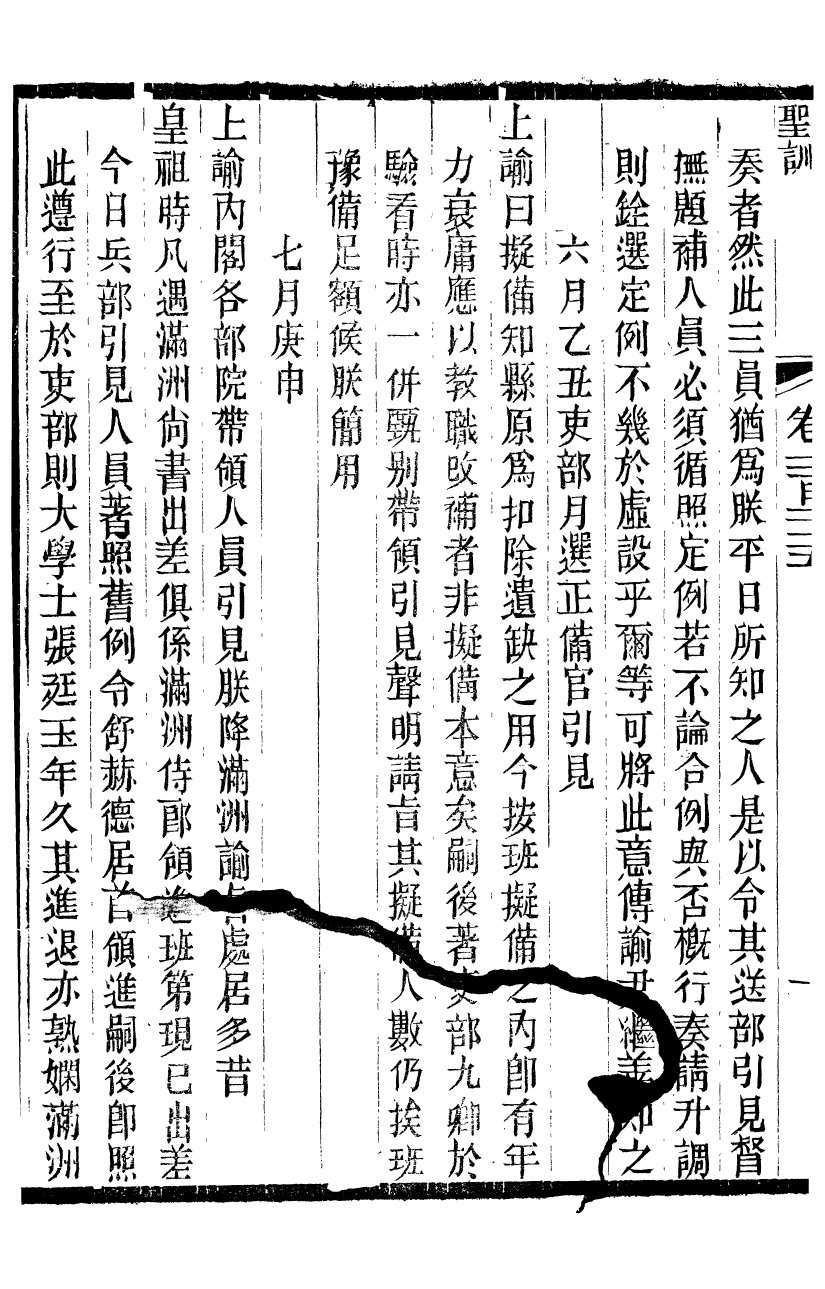 聖訓
卷二百二三
一
奏者然此三員猶爲朕平日所知之人是以令其送部引見督
撫題補人員必須循照定例若不論合例與否槪行奏請升調
則銓選定例不幾於虛設乎爾等可將此意傳諭尹繼善知之
六月乙丑吏部月選正備官引見
上諭曰擬備知縣原爲扣除遺缺之用今按班擬備之內卽有年
力衰庸應以教職改補者非擬備本意矣嗣後著吏部九卿於
驗看時亦一併甄別帶領引見聲明請旨其擬備人數仍挨班
豫備足額候朕簡用
七月庚申
上諭內閣各部院帶領人員引見朕降滿洲諭旨處居多昔
皇祖時凡遇滿洲尙書出差俱係滿洲侍郎領進班第現已出差
今日兵部引見人員著照舊例令舒赫德居首領進嗣後卽照
此遵行至於吏部則大學士張廷玉年久其進退亦熟嫻滿洲